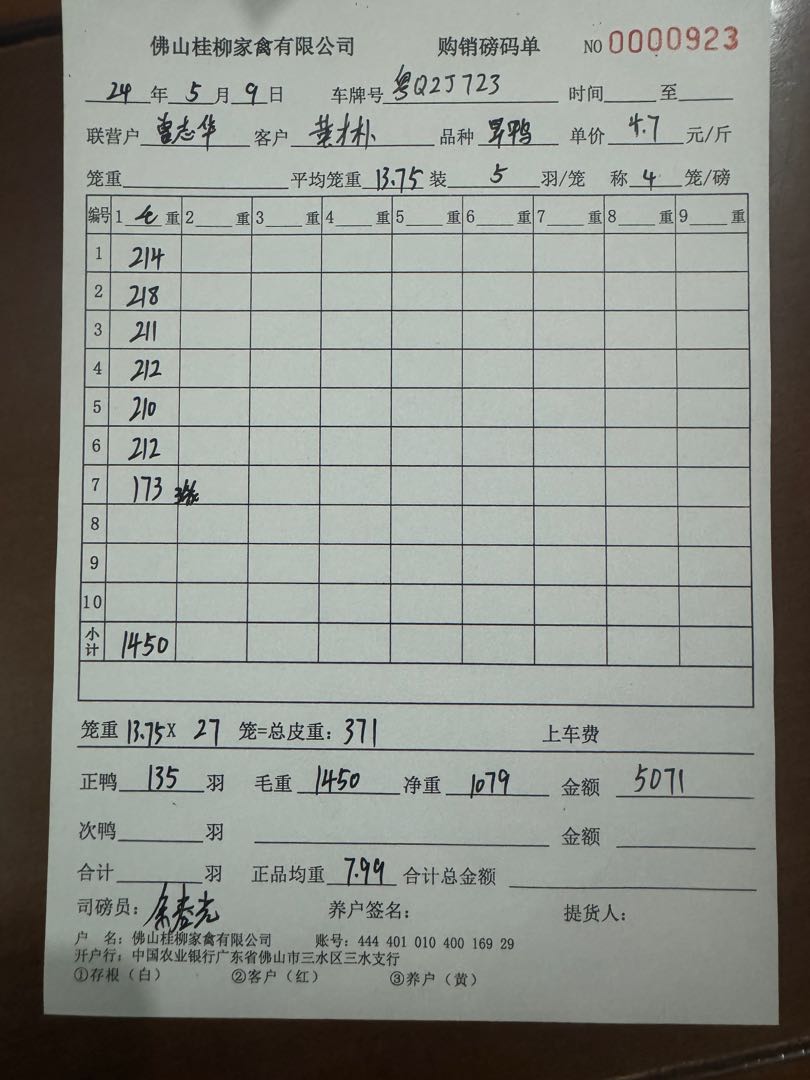 佛山桂柳家禽有限公司 购销磅码单 NO 0000923
24 年 5 月 9 日 车牌号 粤Q2J723 时间 至
联营户 曹志华 客户 叶木朴 品种 旱鸭 单价 4.7 元/斤
笼重 平均笼重 13.75 装 5 羽/笼 称 4 笼/磅
编号 1 毛 重 2 重 3 重 4 重 5 重 6 重 7 重 8 重 9 重
1 214
2 218
3 211
4 212
5 210
6 212
7 173 3笼
8
9
10
小计 1450
笼重 13.75 X 27 笼=总皮重: 371 上车费
正鸭 135 羽 毛重 1450 净重 1079 金额 5071
次鸭 羽 金额
合计 羽 正品均重 7.99 合计总金额
司磅员: 养户签名: 提货人:
户 名: 佛山桂柳家禽有限公司 账号: 444 401 010 400 169 29
开户行: 中国农业银行广东省佛山市三水区三水支行
①存根（白） ②客户（红） ③养户（黄）